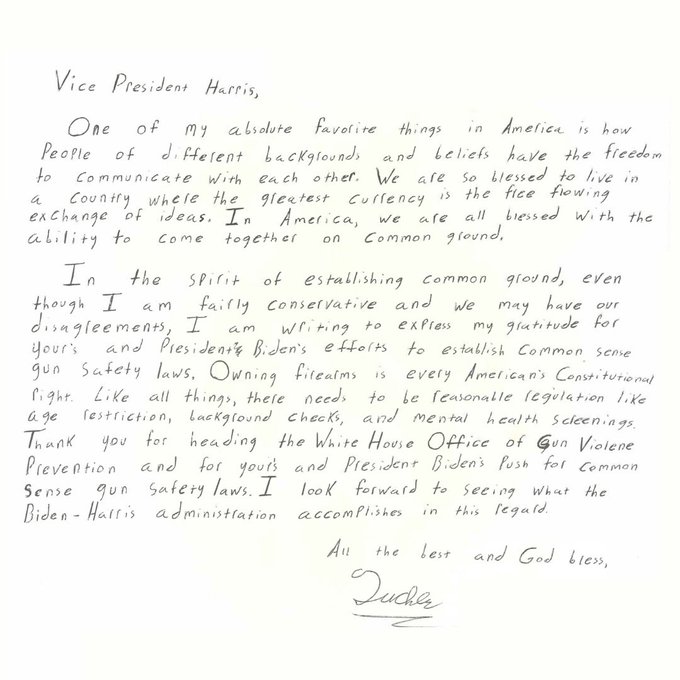 Vice President Harris,
One of my absolute favorite things in America is how
People of different backgrounds and beliefs have the freedom
to communicate with each other. We are so blessed to live in
a Country where the greatest currency is the free flowing
exchange of ideas. In America, we are all blessed with the
ability to come together on common ground.
In the spirit of establishing common ground, even
though I am fairly conservative and we may have our
disagreements, I am writing to express my gratitude for
your's and President's Biden's efforts to establish common sense
gun safety laws. Owning firearms is every American's Constitutional
right. Like all things, there needs to be reasonable regulation like
age restriction, background checks, and mental health screenings.
Thank you for heading the White House Office of Gun Violene
Prevention and for your's and President Biden's Push for Common
Sense gun safety laws. I look forward to seeing what the
Biden-Harris administration accomplishes in this regard.
All the best and God bless,
Tucker